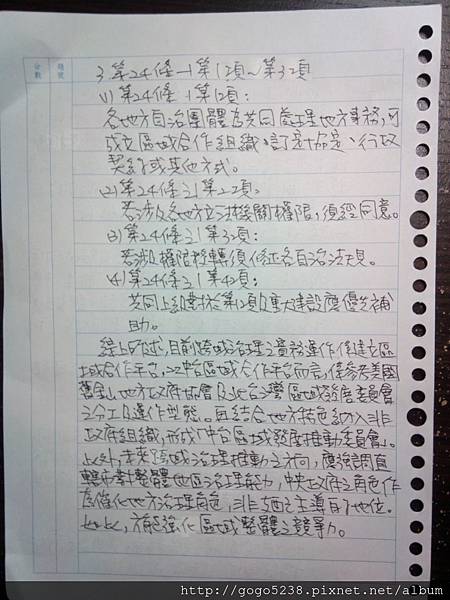 題號
分數
3. 第24條-1第1項~第3項
(1) 第24條-1第1項:
各地方自治團體為共同處理地方事務,可
成立區域合作組織、訂定協定、行政
契約或其他方式。
(2) 第24條之1第2項:
若涉及各地方立法機關權限,須經同意。
(3) 第24條之1第3項:
若涉及權限移轉須修正各自治法規。
(4) 第24條之1第4項:
共同上級對於第1項及重大建設應優先補
助。
綜上所述,目前跨域治理之實務運作係建立區
域合作平台,以中台區域合作平台而言,係參考美國
舊金山地方政府協會及北台灣區域發展委員會
之分工及運作型態。再結合地方特色納入非
政府組織,形成「中台區域發展推動委員會」。
此外,未來跨域治理推動之方向,應強調直
轄市對整體地區治理能力,中央政府之角色作
為催化地方治理角色,非支配之主導者地位。
如此,方能強化區域整體之競爭力。
http://gogo5238.pixnet.net/album